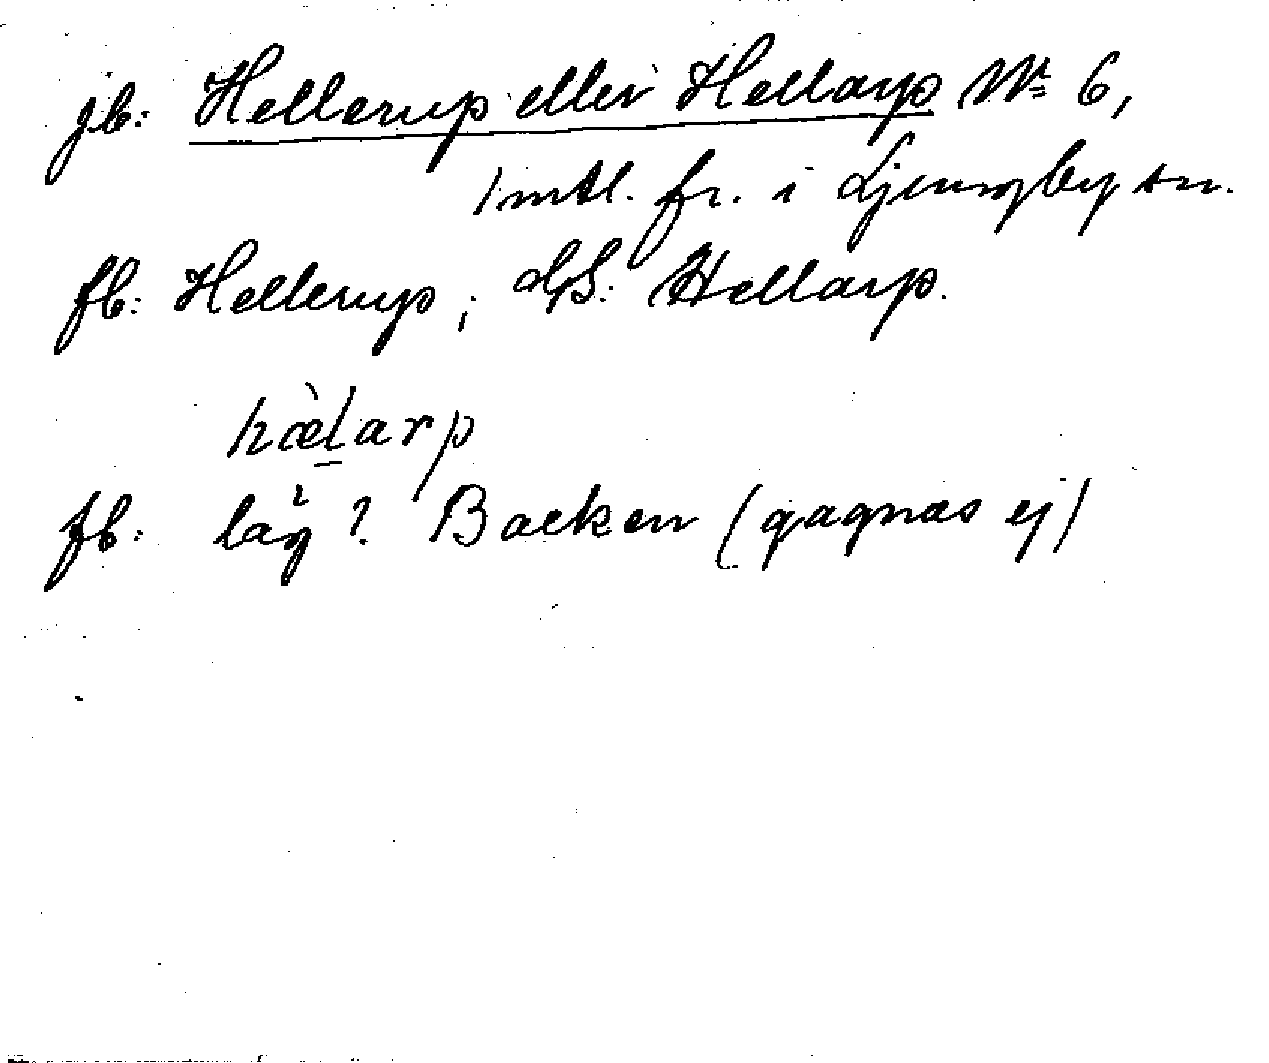 jb: Hellerup eller Hellarp No 6,
1 mtl. fr. i Ljungby sn.
fb: Hellerup; GS: Hellarp.
hæ̀larp
fb: låg? Backen (gagnas ej)